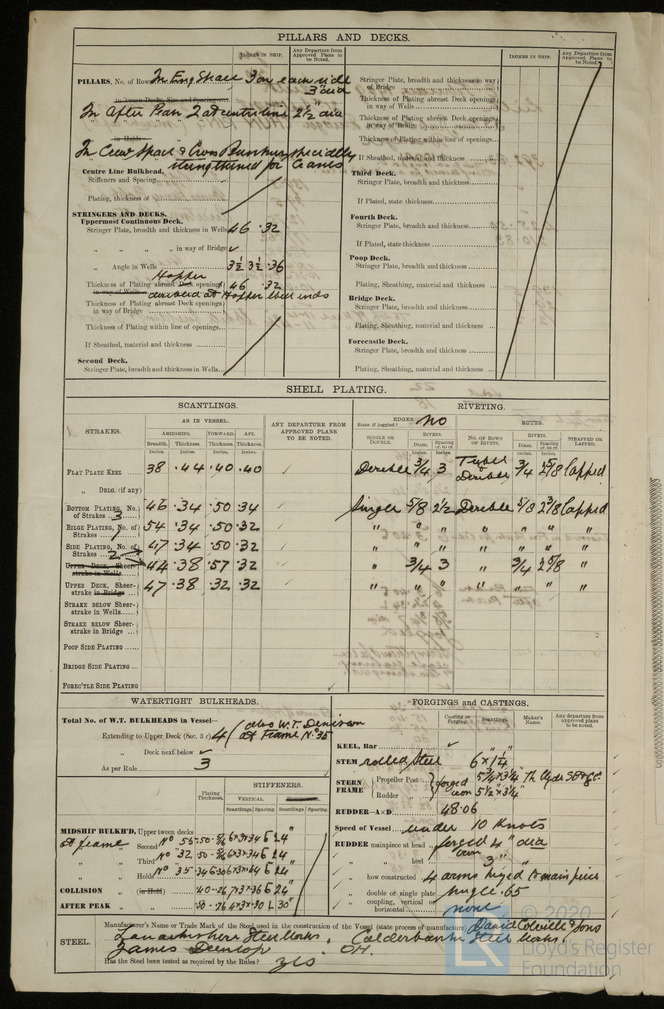 PILLARS AND DECKS.
INCHES IN SHIP.
Any Departure from Approved Plans to be Noted.
INCHES IN SHIP.
Any Departure from Approved Plans to be Noted.
PILLARS, No. of Rows In Eng Space 3 on each side
3" dia
in 'tween Decks, Size and Spacing
In After Peak 2 at centre line 2½" dia
in Holds
In Crew Space & Cross Bunker specially
strengthened for
Centre Line Bulkhead.
Stiffeners and Spacing
Plating, thickness of
STRINGERS AND DECKS.
Uppermost Continuous Deck.
Stringer Plate, breadth and thickness in Wells 46 .32
" " " in way of Bridge ✓
" Angle in Wells 3½ 3½ .36
Hopper
Thickness of Plating abreast Deck openings in way of Wells 46 .32
at Hopper
Thickness of Plating abreast Deck openings in way of Bridge
Thickness of Plating within line of openings
If Sheathed, material and thickness
Second Deck.
Stringer Plate, breadth and thickness in Wells
Stringer Plate, breadth and thickness in way of Bridge
Thickness of Plating abreast Deck openings in way of Wells
Thickness of Plating abreast Deck openings in way of Bridge
Thickness of Plating within line of openings
If Sheathed, material and thickness
Third Deck.
Stringer Plate, breadth and thickness
If Plated, state thickness
Fourth Deck.
Stringer Plate, breadth and thickness
If Plated, state thickness
Poop Deck.
Stringer Plate, breadth and thickness
Plating, Sheathing, material and thickness
Bridge Deck.
Stringer Plate, breadth and thickness
Plating, Sheathing, material and thickness
Forecastle Deck.
Stringer Plate, breadth and thickness
Plating, Sheathing, material and thickness
SHELL PLATING.
SCANTLINGS.
RIVETING.
STRAKES.
AS IN VESSEL.
ANY DEPARTURE FROM APPROVED PLANS TO BE NOTED.
EDGES. No
State if joggled?
BUTTS.
AMIDSHIPS. FORWARD. AFT.
Breadth. Thickness. Thickness. Thickness.
SINGLE OR DOUBLE.
RIVETS.
Diam. Spacing cr. to cr.
NO. OF ROWS OF RIVETS.
RIVETS.
Diam. Spacing cr. to cr.
STRAPPED OR LAPPED.
Inches. Inches. Inches. Inches. Inches. Inches. Inches. Inches.
FLAT PLATE KEEL 38 .44 .40 .40 Double 3/4 3 Treble & Double 3/4 2 5/8 Lapped
" DBLG. (if any)
BOTTOM PLATING, No. of Strakes 3 46 .34 .50 .34 Single 5/8 2½ Double 5/8 2 3/8 Lapped
BILGE PLATING, No. of Strakes 1 54 .34 .50 .32 " " " " " " "
SIDE PLATING, No. of Strakes 2 47 .34 .50 .32 " " " " " " "
UPPER DECK, Sheerstrake in Wells 44 .38 .57 .32 " 3/4 3 " 3/4 2 5/8 "
UPPER DECK, Sheerstrake in Bridge 47 .38 .32 .32 " " " " " " "
STRAKE BELOW Sheerstrake in Wells
STRAKE BELOW Sheerstrake in Bridge
POOP SIDE PLATING
BRIDGE SIDE PLATING
FORE'C'TLE SIDE PLATING
WATERTIGHT BULKHEADS.
Total No. of W.T. BULKHEADS in Vessel—
Extending to Upper Deck (Sec. 3 c) 4 (also W.T. Division at Frame No 35
" Deck next below ✓
As per Rule 3
Plating Thickness.
STIFFENERS.
VERTICAL. HORIZONTAL.
Scantlings Spacing. Scantlings Spacing.
MIDSHIP BULKH'D, Upper tween decks
at frame Second " No 55
" Third " No 32
" Holds No 35
COLLISION " (in Hold)
AFTER PEAK "
FORGINGS and CASTINGS.
Casting or Forging.
Scantlings.
Maker's Name.
Any departure from approved plans to be noted.
KEEL, Bar ✓
STEM rolled Steel 6" x 1¼"
STERN FRAME { Propeller Post forged iron 5¾" x 3¼" The Clyde
Rudder " 5½" x 3¼"
RUDDER—A × D 48.06
Speed of Vessel under 10 Knots
RUDDER mainpiece at head forged iron 4" dia
" " heel 3"
" how constructed 4 arms keyed to main piece
" double or single plate single .65
" coupling, vertical or horizontal none
STEEL.
Manufacturer's Name or Trade Mark of the Steel used in the construction of the Vessel (state process of manufacture) David Colville & Sons
Lanarkshire Steel Works. Calderbank Steel Works.
James Dunlop. OH.
Has the Steel been tested as required by the Rules? yes
© 2020
Lloyd's Register
Foundation